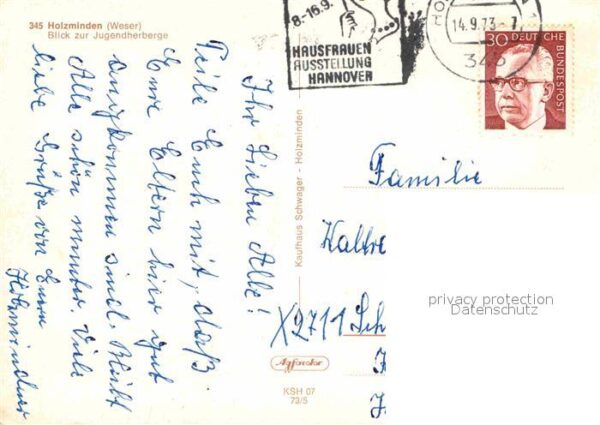 345 Holzminden (Weser)
Blick zur Jugendherberge
8-16.9.
HAUSFRAUEN
AUSSTELLUNG
HANNOVER
14.9.73-7
345
30 DEUTSCHE
BUNDESPOST
Ihr Lieben Alle!
Teile Euch mit, daß
Eure Eltern hier gut
angekommen sind. Bleibt
Alle schön munter. Viele
liebe Grüße von Euren
Holzmindner
Kaufhaus Schwager - Holzminden
Familie
Kaltre
X2711 Sch
privacy protection
Datenschutz
Agfacolor
KSH 07
73/5